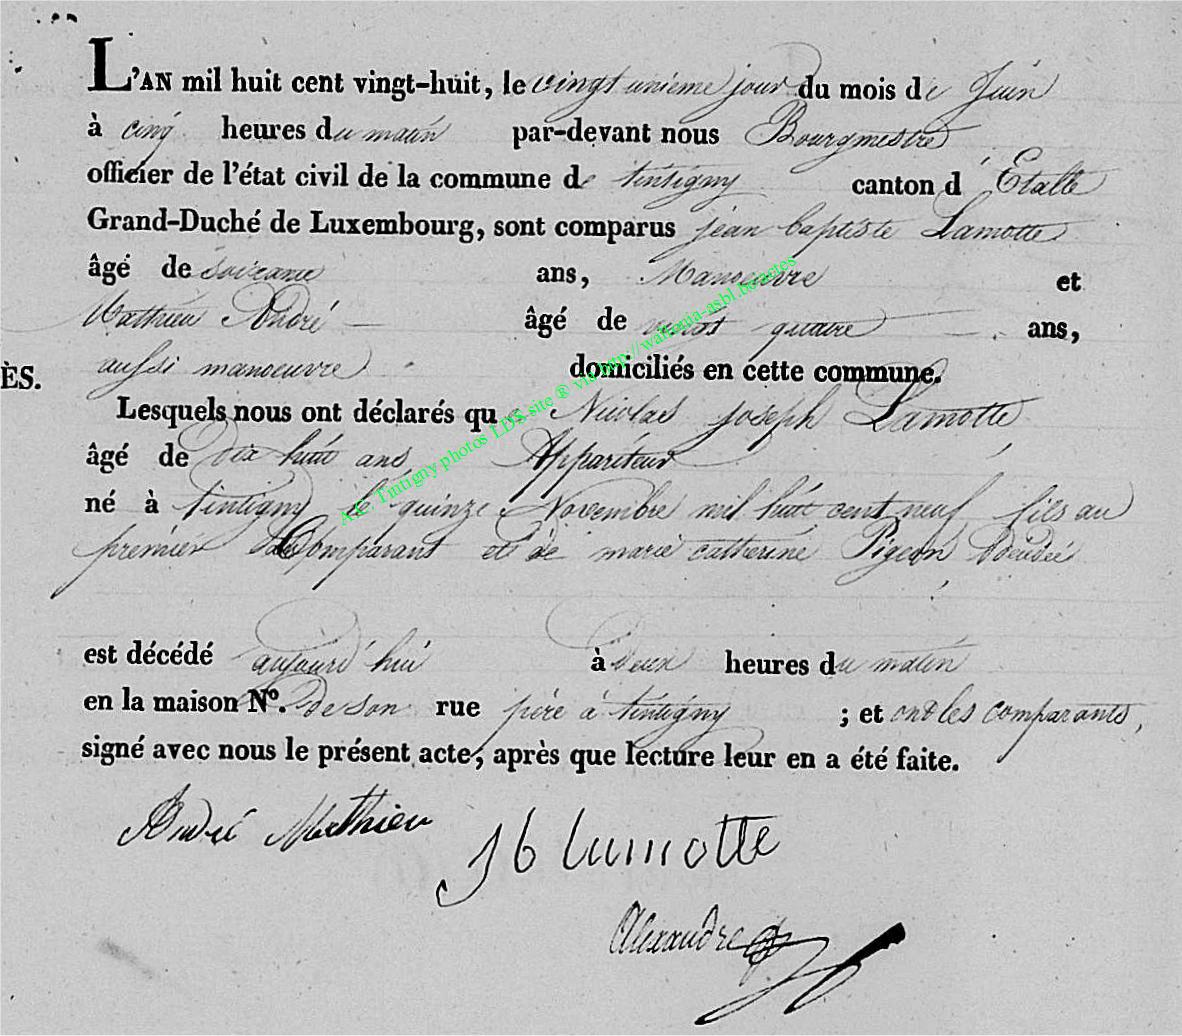 L'AN mil huit cent vingt-huit, le vingt unieme jour du mois de Juin
à cinq heures du matin par-devant nous Bourgmestre
officier de l'état civil de la commune de tintigny canton d'Etalle
Grand-Duché de Luxembourg, sont comparus jean baptiste Lamotte
âgé de soixante ans, Manoeuvre et
Mathieu André âgé de vingt quatre ans,
aussi manoeuvre domiciliés en cette commune.
ÈS.
Lesquels nous ont déclarés que Nicolas joseph Lamotte
âgé de dix huit ans, Appariteur
né à tintigny le quinze Novembre mil huit cent neuf, fils au
premier Comparant et de marie catherine Pigeon
est décédé aujourd'hui à deux heures du matin
en la maison N°. de son rue père à tintigny ; et ont les comparants,
signé avec nous le présent acte, après que lecture leur en a été faite.
André Mathieu
J b lamotte
Alexandre
A.C. Tintigny photos LDS site ® via http://wallonia-asbl.be/actes